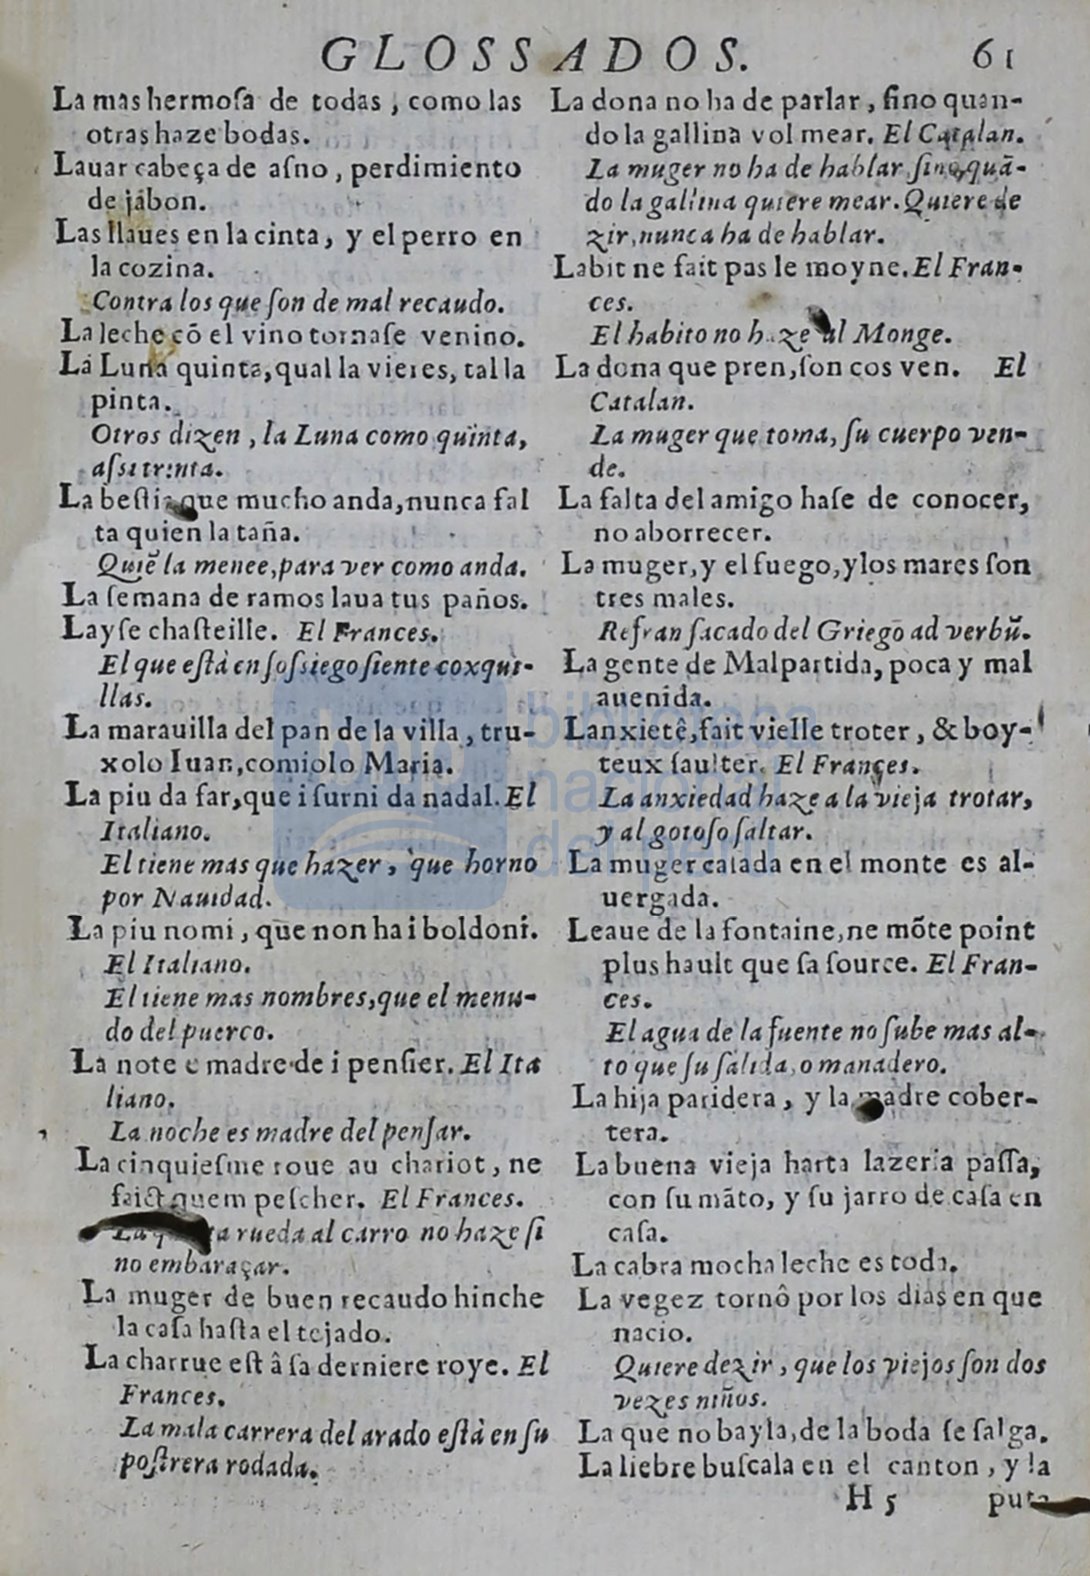 GLOSSADOS. 61
La mas hermoſa de todas, como las
otras haze bodas.
Lauar cabeça de aſno, perdimiento
de jabon.
Las llaues en la cinta, y el perro en
la cozina.
Contra los que ſon de mal recaudo.
La leche cõ el vino tornaſe venino.
La Luna quinta, qual la vieres, tal la
pinta.
Otros dizen, la Luna como quinta,
aſsi trinta.
La beſtia que mucho anda, nunca fal
ta quien la taña.
Quiẽ la menee, para ver como anda.
La ſemana de ramos laua tus paños.
Lay ſe chaſteille. El Frances.
El que eſtà en ſoſsiego ſiente coxqui-
llas.
La marauilla del pan de la villa, tru-
xolo Iuan, comiolo Maria.
La piu da far, que i furni da nadal. El
Italiano.
El tiene mas que hazer, que horno
por Nauidad.
La piu nomi, que non ha i boldoni.
El Italiano.
El tiene mas nombres, que el menu-
do del puerco.
La note e madre de i penſier. El Ita
liano.
La noche es madre del penſar.
La cinquieſme roue au chariot, ne
faict quem peſcher. El Frances.
La rueda al carro no haze ſi
no embaraçar.
La muger de buen recaudo hinche
la caſa haſta el tejado.
La charrue eſt â ſa derniere roye. El
Frances.
La mala carrera del arado eſtà en ſu
poſtrera rodada.
La dona no ha de parlar, ſino quan-
do la gallina vol mear. El Catalan.
La muger no ha de hablar, ſino quã-
do la gallina quiere mear. Quiere de
zir, nunca ha de hablar.
Labit ne fait pas le moyne. El Fran-
ces.
El habito no haze al Monge.
La dona que pren, ſon cos ven. El
Catalan.
La muger que toma, ſu cuerpo ven-
de.
La falta del amigo haſe de conocer,
no aborrecer.
La muger, y el fuego, y los mares ſon
tres males.
Refran ſacado del Griego ad verbũ.
La gente de Malpartida, poca y mal
auenida.
Lanxietê, fait vielle troter, & boy-
teux ſaulter. El Frances.
La anxiedad haze a la vieja trotar,
y al gotoſo ſaltar.
La muger caſada en el monte es al-
uergada.
Leaue de la fontaine, ne mõte point
plus hault que ſa ſource. El Fran-
ces.
El agua de la fuente no ſube mas al-
to que ſu ſalida, o manadero.
La hija paridera, y la madre cober-
tera.
La buena vieja harta lazeria paſſa,
con ſu mãto, y ſu jarro de caſa en
caſa.
La cabra mocha leche es toda.
La vegez tornô por los dias en que
nacio.
Quiere dezir, que los viejos ſon dos
vezes niños.
La que no bayla, de la boda ſe ſalga.
La liebre buſcala en el canton, y la
H 5 puta